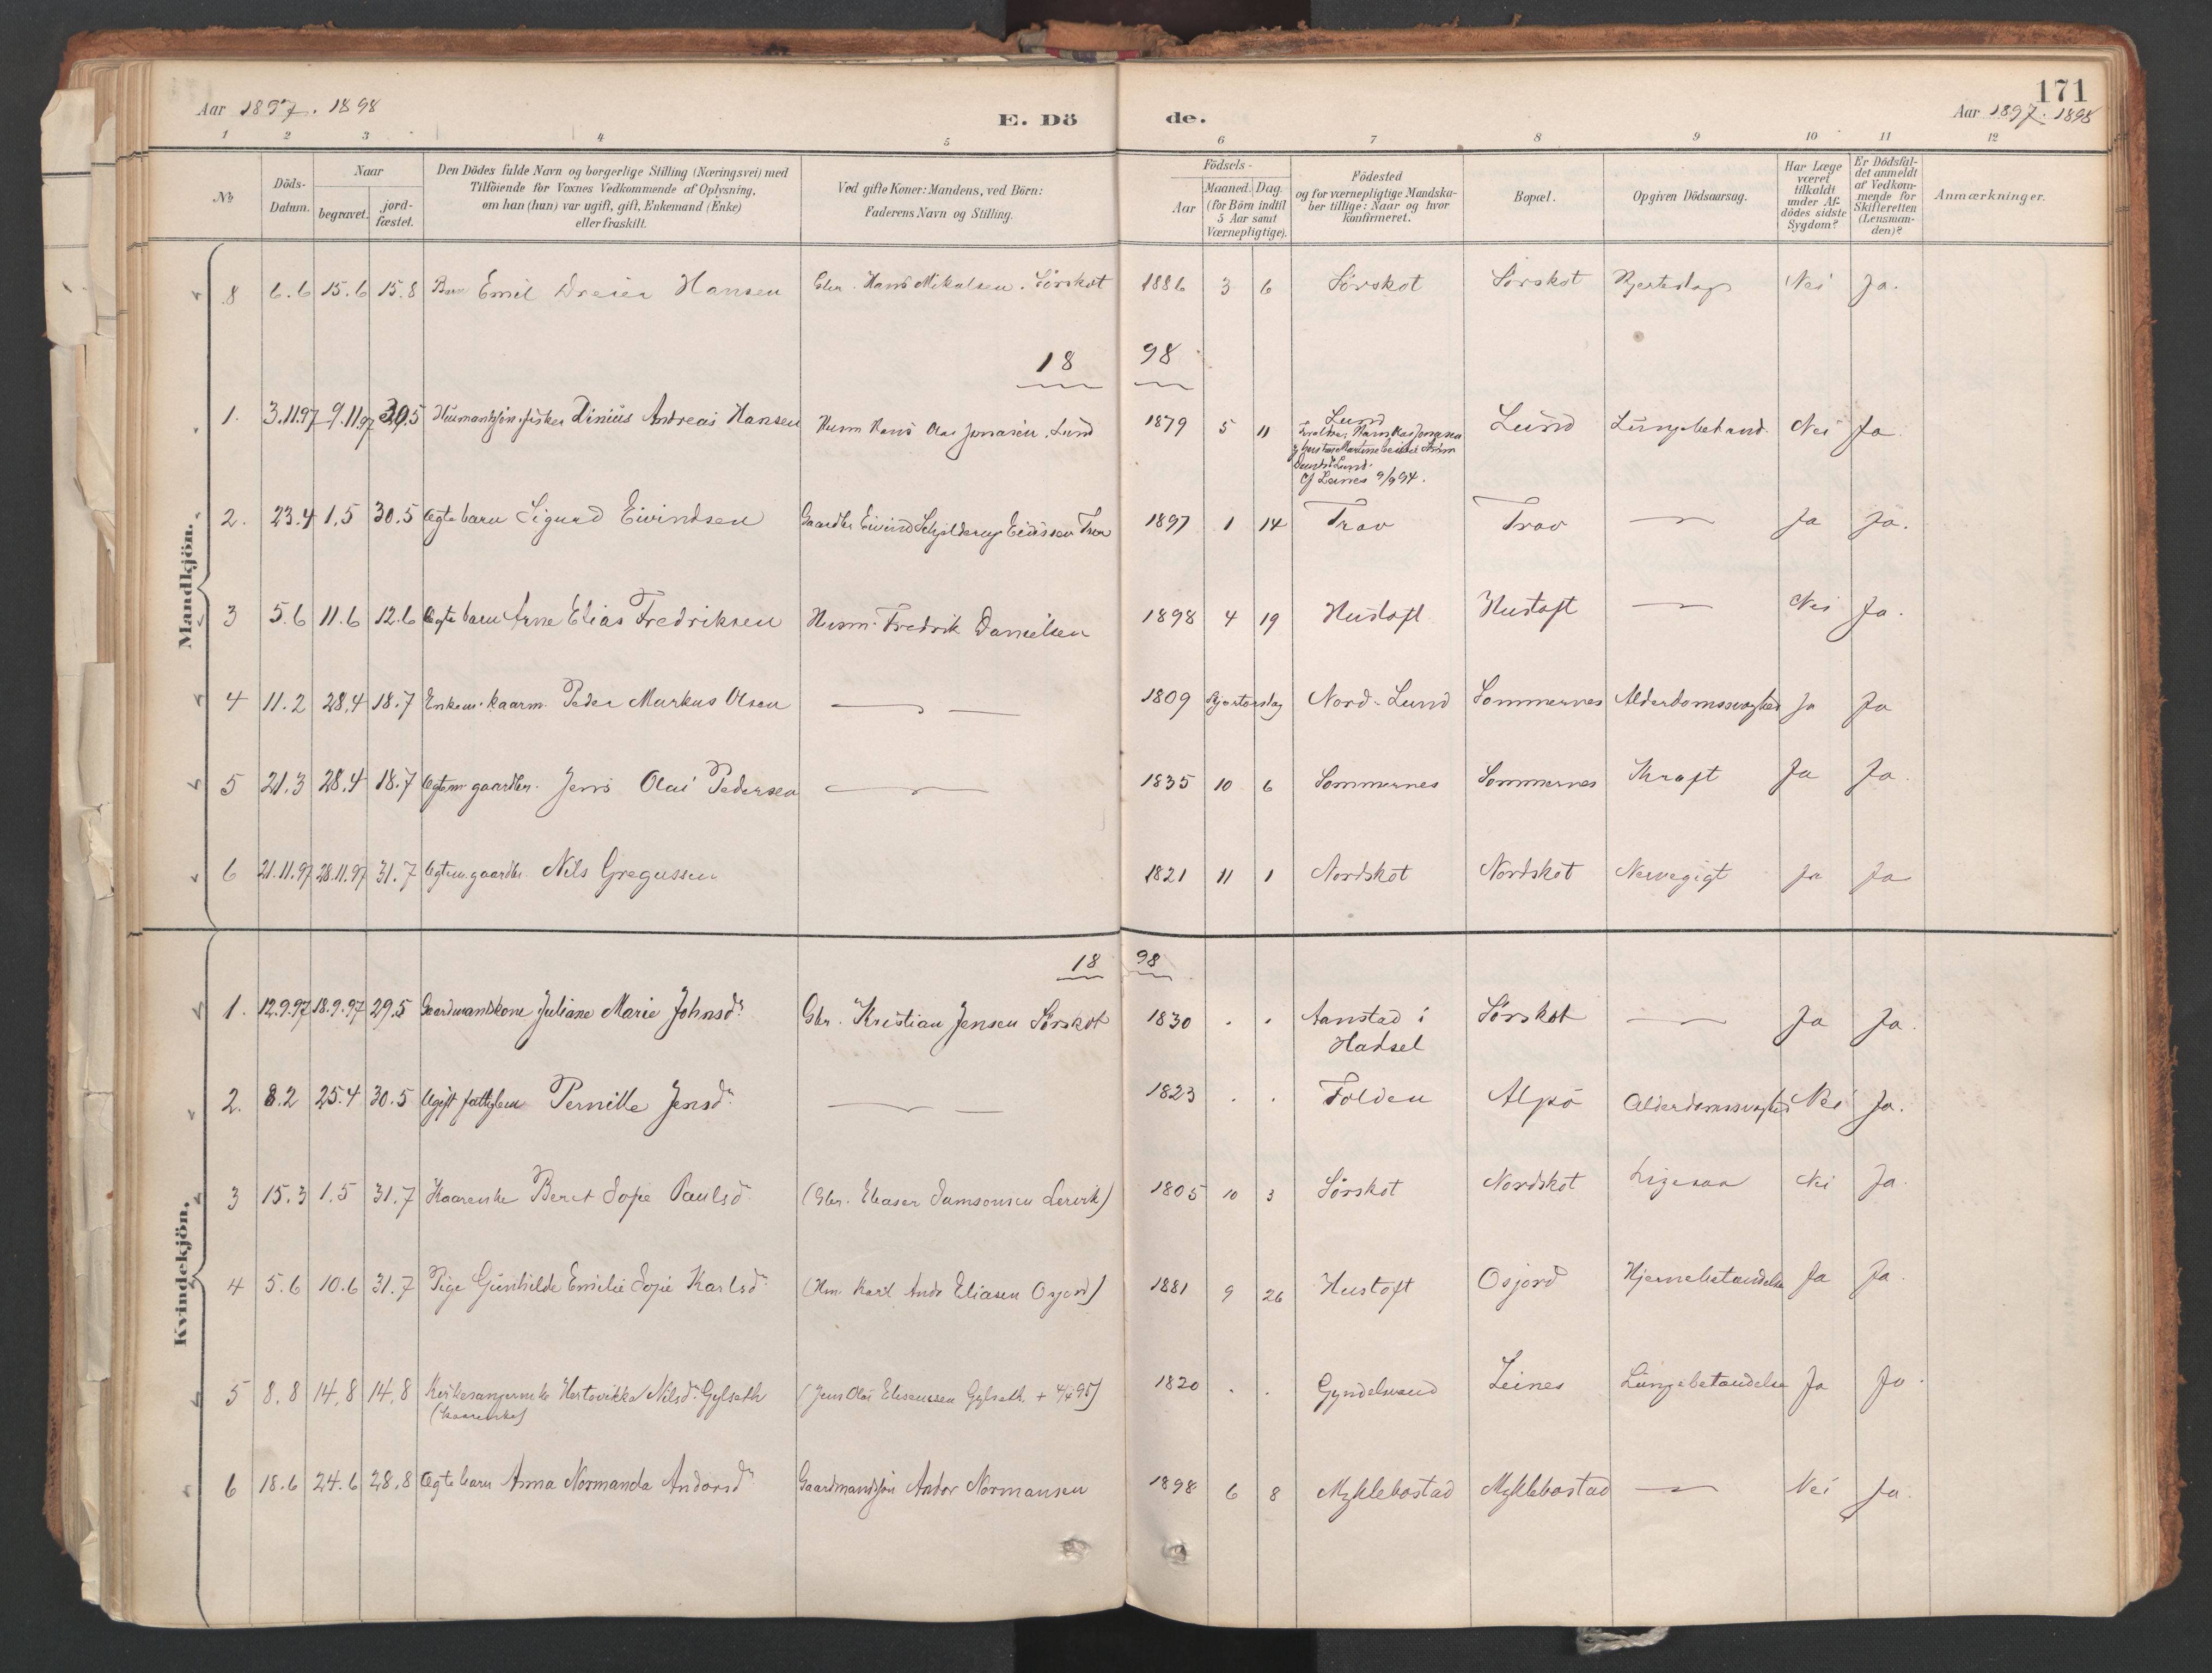 171
Aar 1897. 1898
E. Dö
de.
Aar 1897. 1898
1 2 3 4 5 6 7 8 9 10 11 12
No
Döds-
Datum.
Naar
begravet.
jord-
fæstet.
Den Dödes fulde Navn og borgerlige Stilling (Næringsvei) med
Tilföiende for Voxnes Vedkommende af Oplysning,
om han (hun) var ugift, gift, Enkemand (Enke)
eller fraskilt.
Ved gifte Koner: Mandens, ved Börn:
Faderens Navn og Stilling.
Födsels-
Aar
Maaned. Dag.
(for Börn indtil
5 Aar samt
Værnepligtige).
Födested
og for værnepligtige Mandska-
ber tillige: Naar og hvor
konfirmeret.
Bopæl.
Opgiven Dödsaarsag.
Har Læge
været
tilkaldt
under Af-
dödes sidste
Sygdom?
Er Dödsfal-
det anmeldt
af Vedkom-
mende for
Skifteretten
(Lensman-
den)?
Anmærkninger.
Mandkjön.
8 6.6 15.6 15.8 Barn Emil Dreier Hansen Gbr. Hans Mikalsen. Sörskot 1886 3 6 Sörskot Sörskot Hjerteslag Nei Ja.
18 98
1. 3.11.97 9.11.97 30.5 Husmandssön, fisker Dinius Andreas Hansen Husm Hans Olai Jonasen, Lund 1879 5 11 Lund Lund Lungebetænd. Nei Ja
Lund.
Leines 9/9 94.
2. 23.4 1.5 30.5 Ægte barn Sigurd Eivindsen Gaardbr Eivind Schjelderup Eliassen Trav 1897 1 14 Trav Trav — Ja Ja.
3 5.6 11.6 12.6 Ægte barn Arne Elias Fredriksen Husm. Fredrik Danielsen 1898 4 19 Hustoft Hustoft — Nei Ja.
4 11.2 28.4 18.7 Enkem. kaarm. Peder Markus Olsen — — 1809 Skjærtorsdag Nord-Lund Sommernes Alderdomssvaghed Ja Ja
5 21.3 28.4 18.7 Ægtem. gaardbr. Jens Olai Pedersen — 1835 10 6 Sommernes Sommernes Kræft Ja Ja.
6 21.11.97 28.11.97 31.7 Ægtem. gaardbr. Nils Gregussen 1821 11 1 Nordskot Nordskot Nervegigt Ja Ja
Kvindekjön.
18 98
1. 12.9.97 18.9.97 29.5 Gaardmandskone Juliane Marie Johnsdr Gbr. Kristian Jensen Sörskot 1830 . . Aanstad i Sörskot — Ja Ja.
Hadsel
2. 8.2 25.4 30.5 Ugift fattiglem Pernille Jensdr — — 1823 . . Folden Alpö Alderdomssvaghed Nei Ja.
3 15.3 1.5 31.7 Kaarenke Beret Sofie Paulsdr (Gbr. Eleaser Samsonsen Lervik) 1805 10 3 Sörskot Nordskot Ligesaa Nei Ja.
4 5.6 10.6 31.7 Pige Gunhilde Emilie Sofie Karlsdr (Hm. Karl Andr Eliasen Osjord) 1881 9 26 Hustoft Osjord Hjernebetændelse Ja Ja.
5 8.8 14.8 14.8 Kirkesangerenke Hertevikka Nilsdr Gylseth (Jens Olai Elisæussen Gylseth. + 4/4 95) 1820 . . Gyndelsvand Leines Lungebetændelse Ja Ja.
(kaarenke)
6 18.6 24.6 28.8 Ægte barn Anna Normanda Andorsdr Gaardmandssön Andor Normansen 1898 6 8 Myklebostad Myklebostad — Nei Ja.